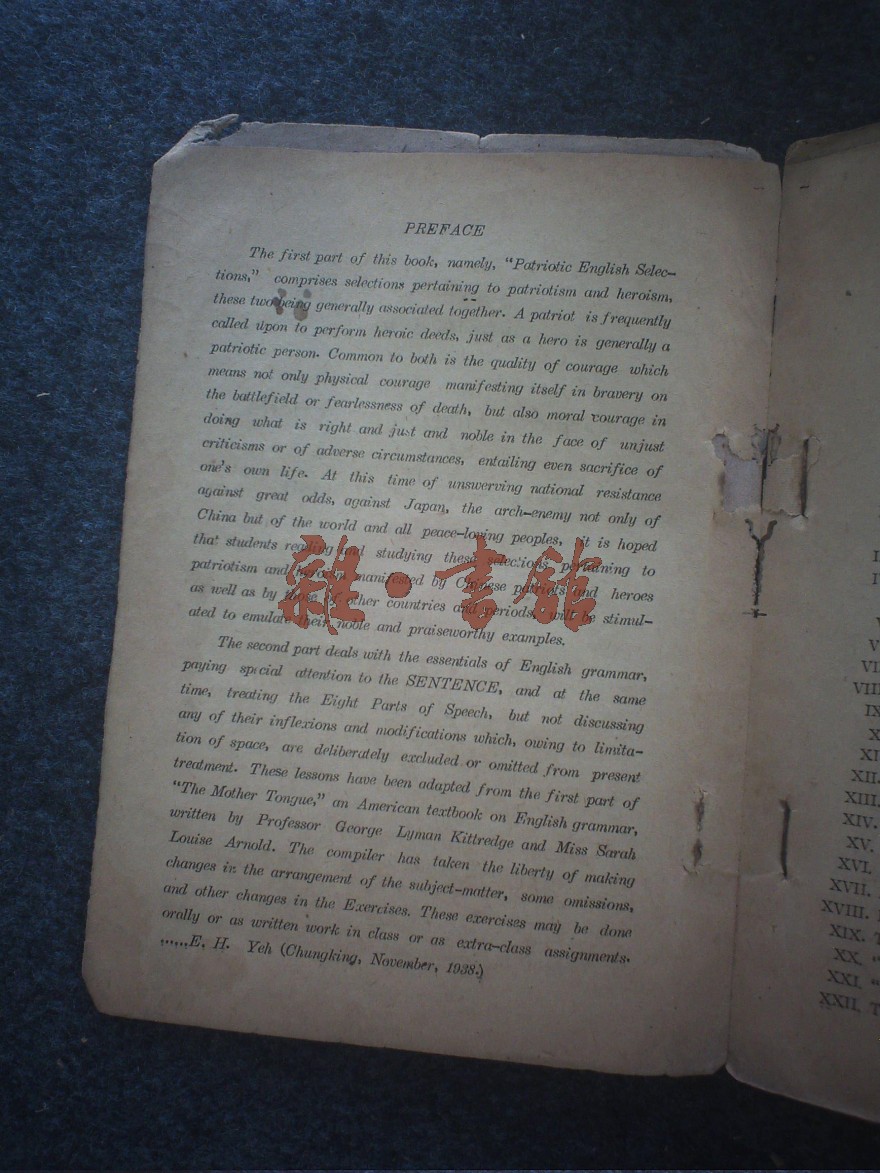 PREFACE
The first part of this book, namely, “Patriotic English Selec-
tions,” comprises selections pertaining to patriotism and heroism,
these two being generally associated together. A patriot is frequently
called upon to perform heroic deeds, just as a hero is generally a
patriotic person. Common to both is the quality of courage which
means not only physical courage manifesting itself in bravery on
the battlefield or fearlessness of death, but also moral courage in
doing what is right and just and noble in the face of unjust
criticisms or of adverse circumstances, entailing even sacrifice of
one's own life. At this time of unswerving national resistance
against great odds, against Japan, the arch-enemy not only of
China but of the world and all peace-loving peoples, it is hoped
that students reading and studying these selections pertaining to
patriotism and heroism manifested by Chinese patriots and heroes
as well as by those of other countries and periods, will be stimul-
ated to emulate their noble and praiseworthy examples.
The second part deals with the essentials of English grammar,
paying special attention to the SENTENCE, and at the same
time, treating the Eight Parts of Speech, but not discussing
any of their inflexions and modifications which, owing to limita-
tion of space, are deliberately excluded or omitted from present
treatment. These lessons have been adapted from the first part of
“The Mother Tongue,” an American textbook on English grammar,
written by Professor George Lyman Kittredge and Miss Sarah
Louise Arnold. The compiler has taken the liberty of making
changes in the arrangement of the subject-matter, some omissions,
and other changes in the Exercises. These exercises may be done
orally or as written work in class or as extra-class assignments.
......E. H. Yeh (Chungking, November, 1938.)
雜·書館
VIII
IX
X
XI
XII.
XIII.
XIV.
XV.
XVI.
XVII.
XVIII.
XIX. T
XX. “
XXI. “
XXII. T